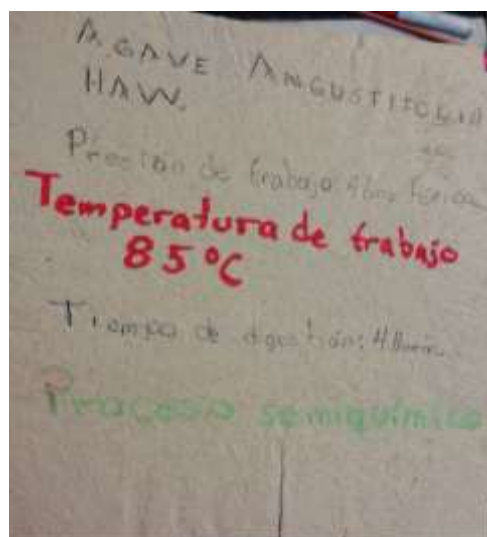 AGAVE ANGUSTIFOLIA
HAW.
Presión de trabajo: Atmosférica
Temperatura de trabajo
85°C
Tiempo de digestión: 4 horas
Proceso semiquímico